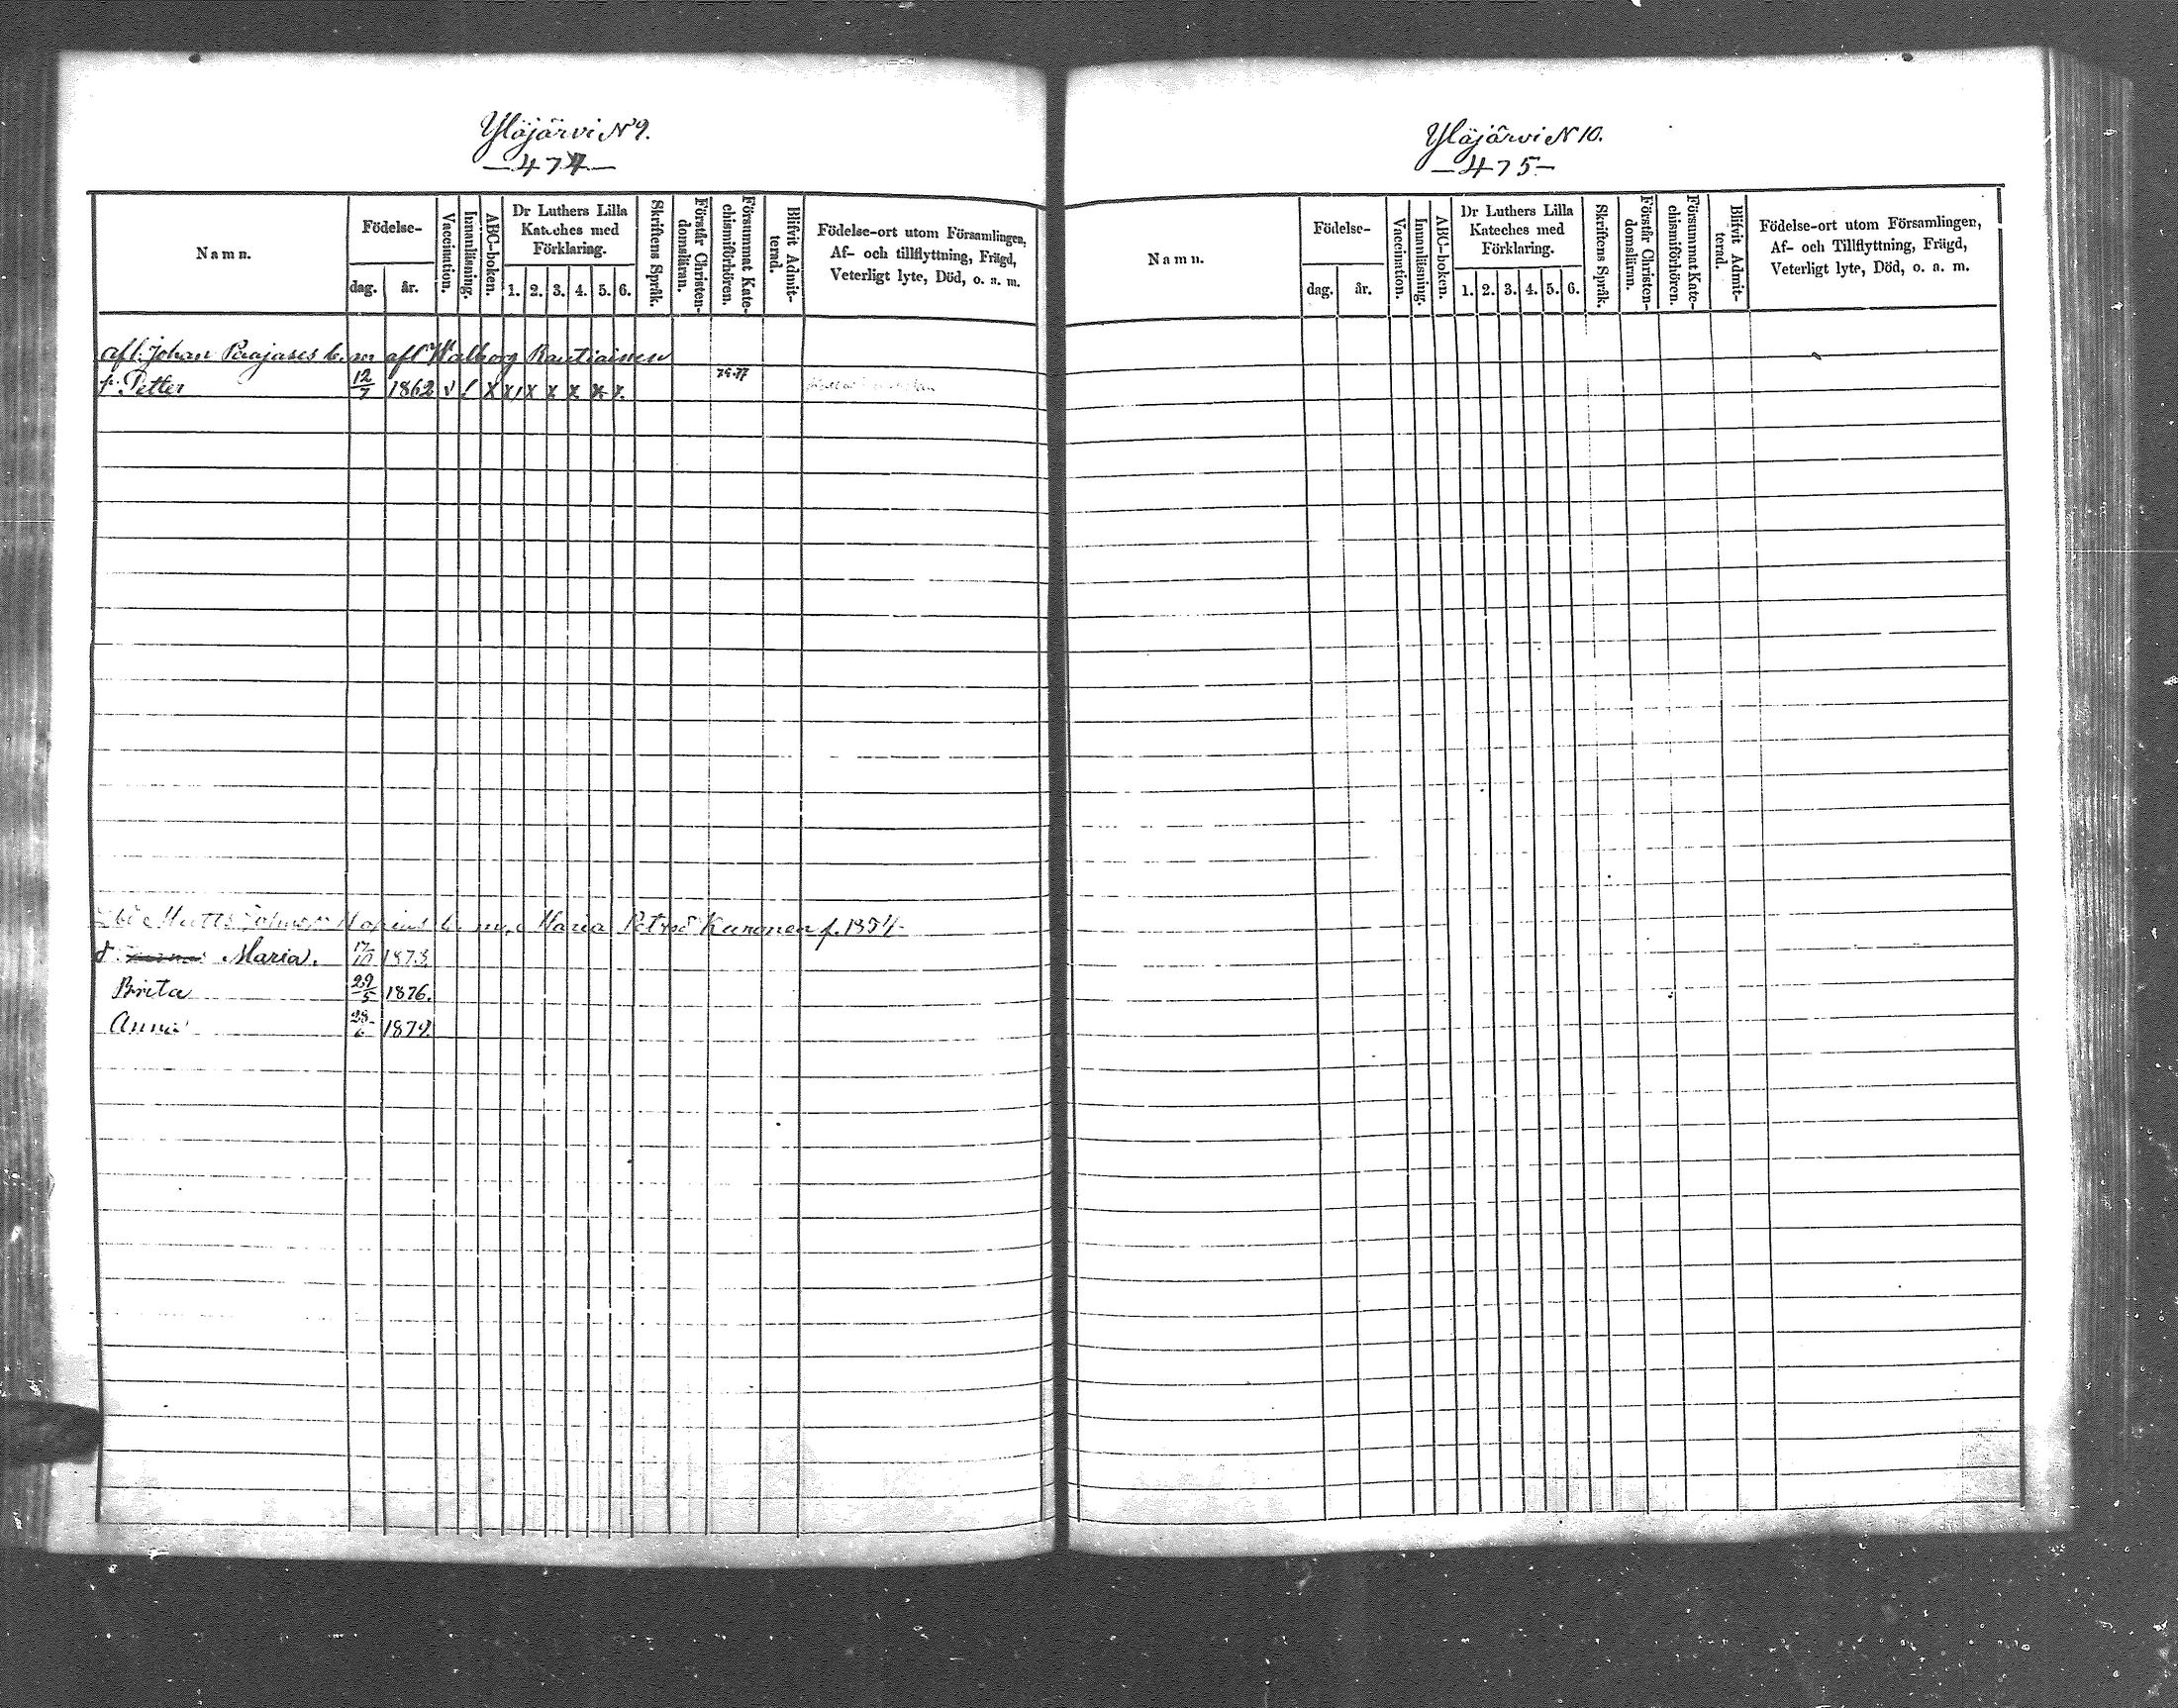 Yläjärvi N 9.
— 474 —
Namn.
Födelse-
dag.
år.
Vaccination.
Innanläsning.
ABC-boken.
Dr Luthers Lilla
Kateches med
Förklaring.
1. 2. 3. 4. 5. 6.
Skriftens Språk.
Förstår Christen-
domsläran.
Försummat Kate-
chismiförhören.
Blifvit Admit-
terad.
Födelse-ort utom Församlingen,
Af- och tillflyttning, Frägd,
Veterligt lyte, Död, o. a. m.
afl. Johan Paajases b. m. afl. Walborg Rautiainen
76.77
s. Petter 12/7 1862 v / X X X X X X X
Matts Johns b. m. Maria Petri Kunonen f. 1854
d. Maria. 17/10 1873.
Brita 29/5 1876.
Anna 28/6 1879.
Yläjärvi N 10.
— 475 —
Namn.
Födelse-
dag.
år.
Vaccination.
Innanläsning.
ABC-boken.
Dr Luthers Lilla
Kateches med
Förklaring.
1. 2. 3. 4. 5. 6.
Skriftens Språk.
Förstår Christen-
domsläran.
Försummat Kate-
chismiförhören.
Blifvit Admit-
terad.
Födelse-ort utom Församlingen,
Af- och Tillflyttning, Frägd,
Veterligt lyte, Död, o. a. m.